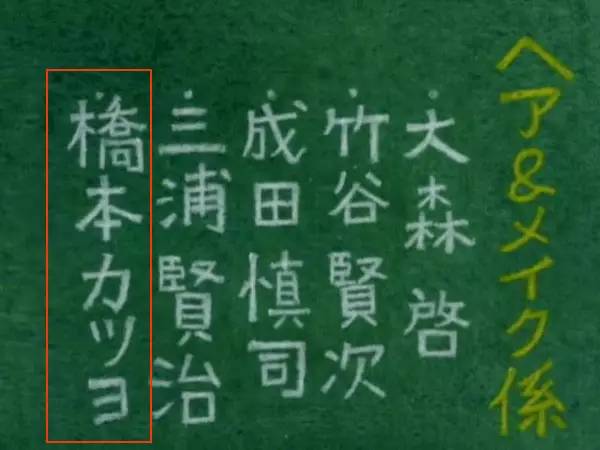 ヘア&メイク係
・大森 啓
・竹谷賢次
・成田慎司
・三浦賢治
・橋本カツヨ